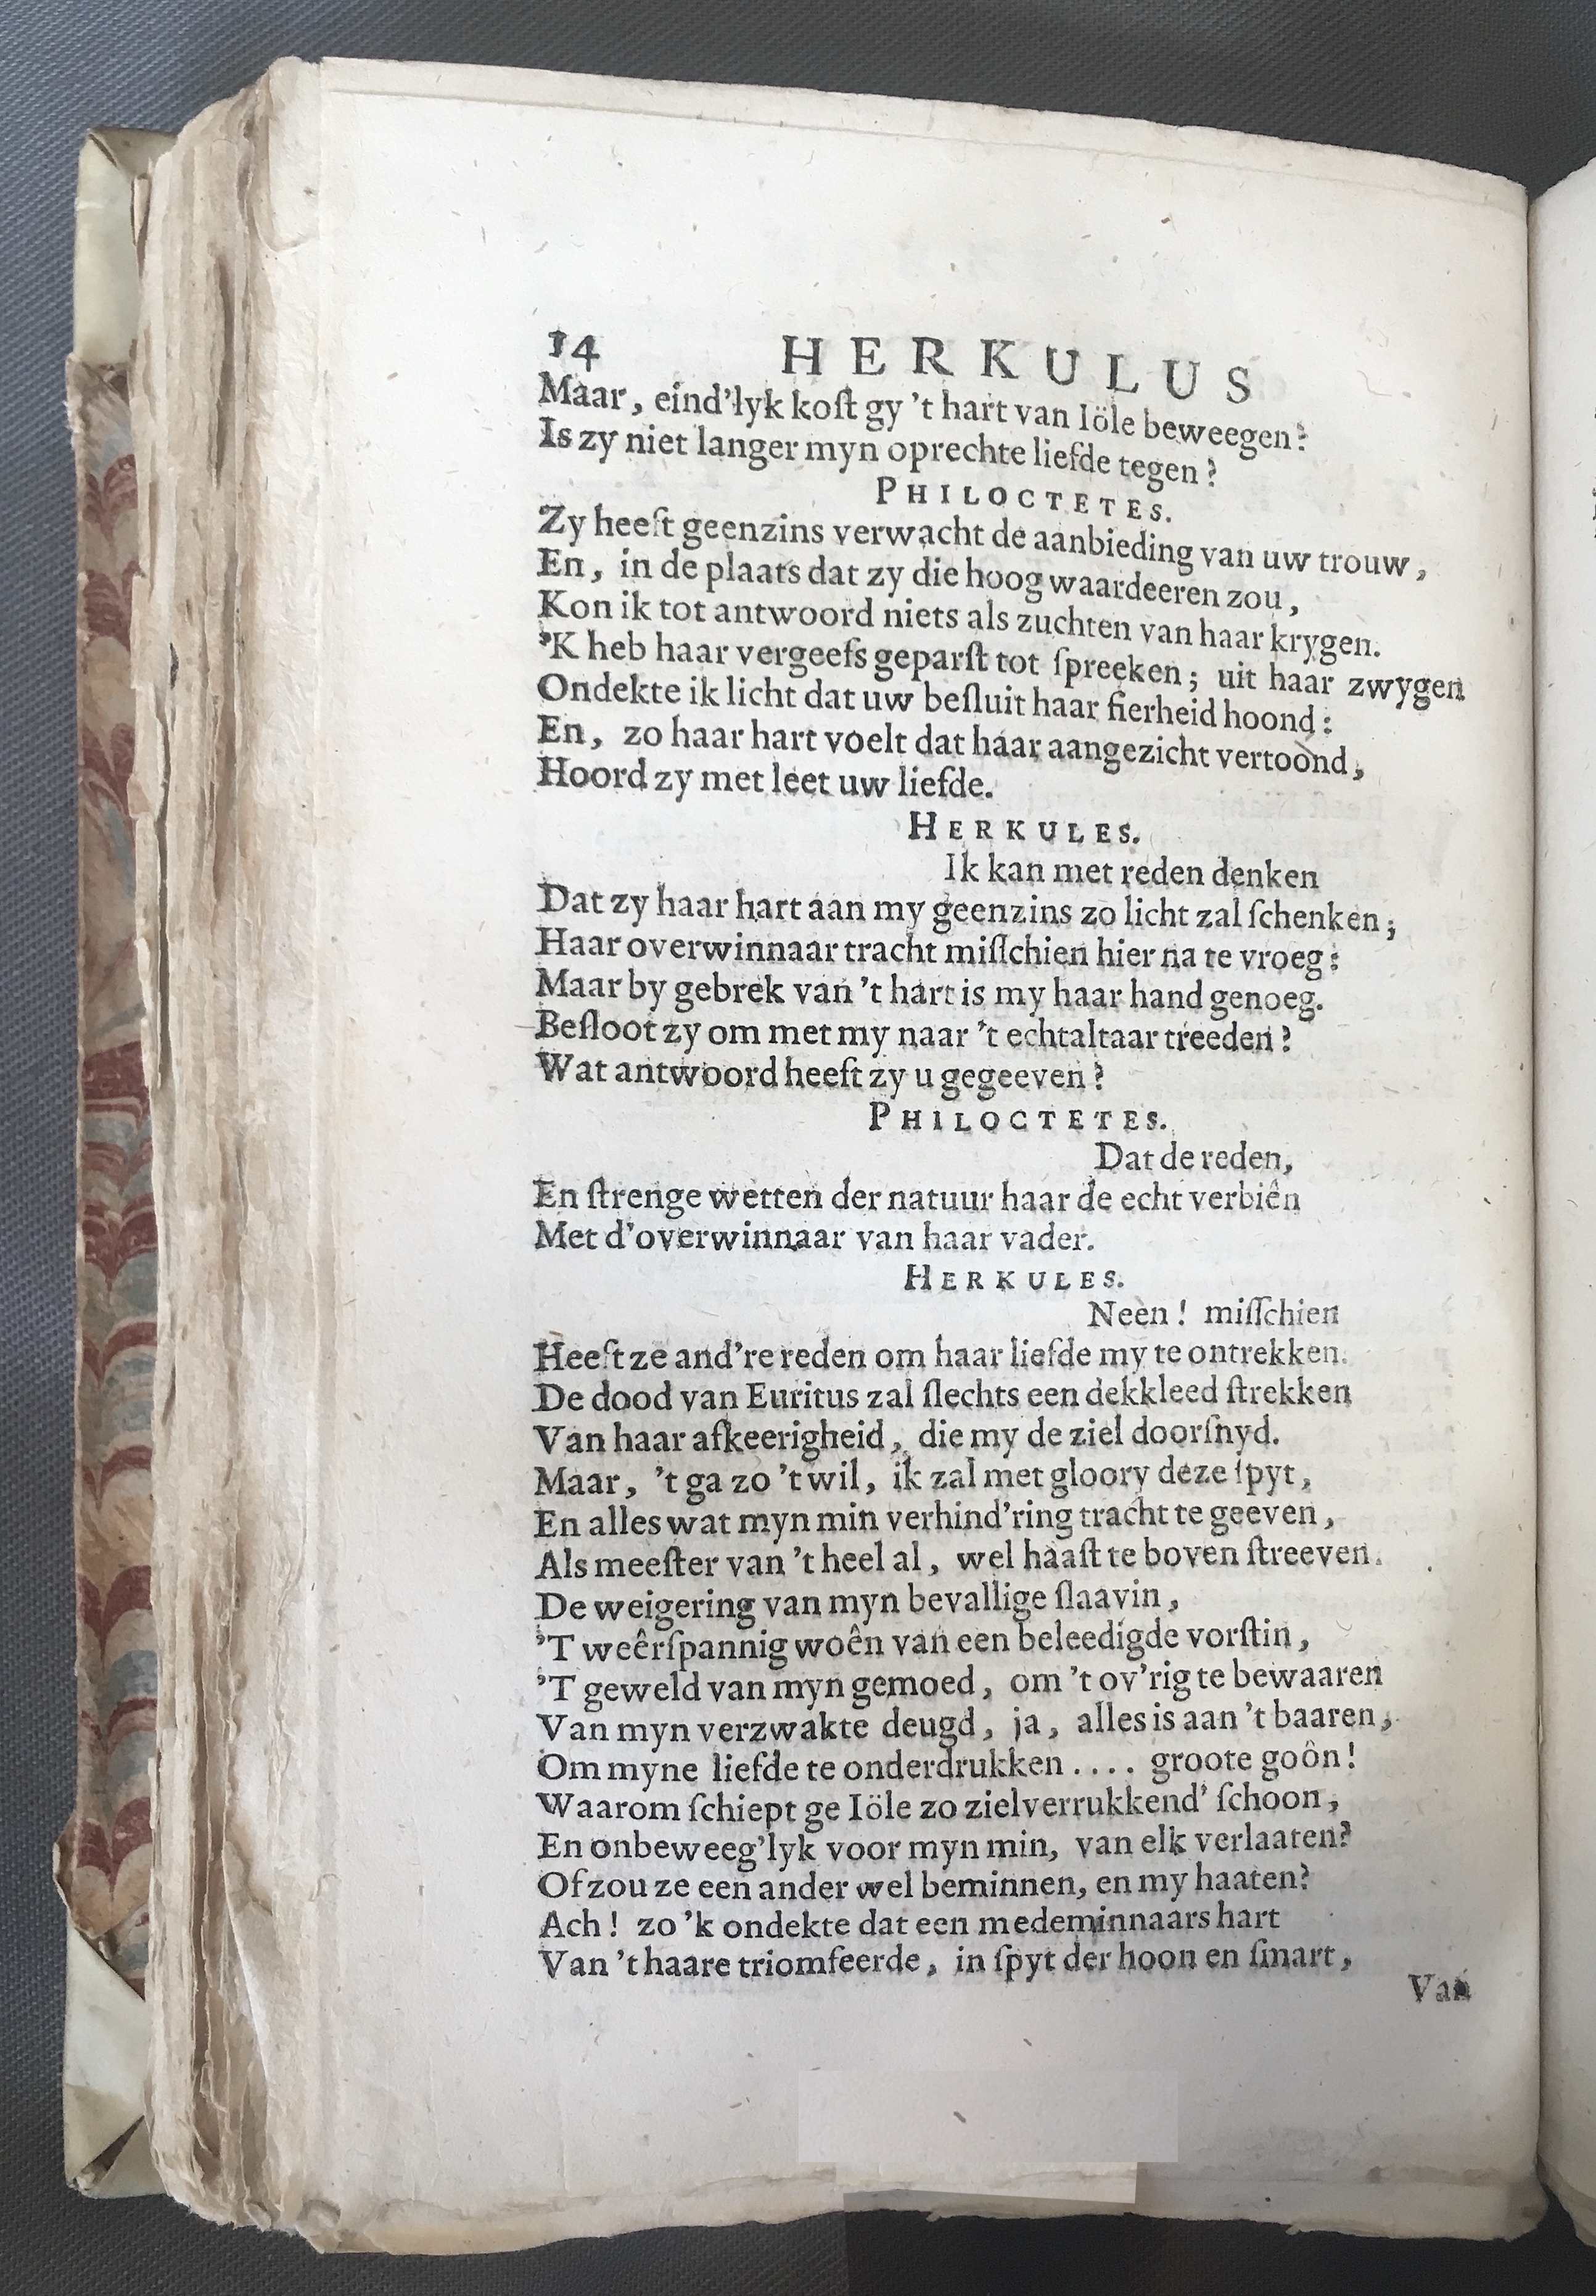 14 HERKULUS
Maar, eind'lyk koſt gy 't hart van Iöle beweegen?
Is zy niet langer myn oprechte liefde tegen?
PHILOCTETES.
Zy heeft geenzins verwacht de aanbieding van uw trouw,
En, in de plaats dat zy die hoog waardeeren zou,
Kon ik tot antwoord niets als zuchten van haar krygen.
'K heb haar vergeefs geparſt tot ſpreeken; uit haar zwygen
Ondekte ik licht dat uw beſluit haar fierheid hoond:
En, zo haar hart voelt dat haar aangezicht vertoond,
Hoord zy met leet uw liefde.
HERKULES.
Ik kan met reden denken
Dat zy haar hart aan my geenzins zo licht zal ſchenken;
Haar overwinnaar tracht miſſchien hier na te vroeg:
Maar by gebrek van 't hart is my haar hand genoeg.
Beſloot zy om met my naar 't echtaltaar treeden?
Wat antwoord heeft zy u gegeeven?
PHILOCTETES.
Dat de reden,
En ſtrenge wetten der natuur haar de echt verbiên
Met d'overwinnaar van haar vader.
HERKULES.
Neen! miſſchien
Heeft ze and're reden om haar liefde my te ontrekken.
De dood van Euritus zal ſlechts een dekkleed ſtrekken
Van haar afkeerigheid, die my de ziel doorſnyd.
Maar, 't ga zo 't wil, ik zal met gloory deze ſpyt,
En alles wat myn min verhind'ring tracht te geeven,
Als meeſter van 't heel al, wel haaſt te boven ſtreeven.
De weigering van myn bevallige ſlaavin,
'T weêrſpannig woên van een beleedigde vorſtin,
'T geweld van myn gemoed, om 't ov'rig te bewaaren
Van myn verzwakte deugd, ja, alles is aan 't baaren,
Om myne liefde te onderdrukken .... groote goôn!
Waarom ſchiept ge Iöle zo zielverrukkend' ſchoon,
En onbeweeg'lyk voor myn min, van elk verlaaten?
Of zou ze een ander wel beminnen, en my haaten?
Ach! zo 'k ondekte dat een medeminnaars hart
Van 't haare triomfeerde, in ſpyt der hoon en ſmart,
Van